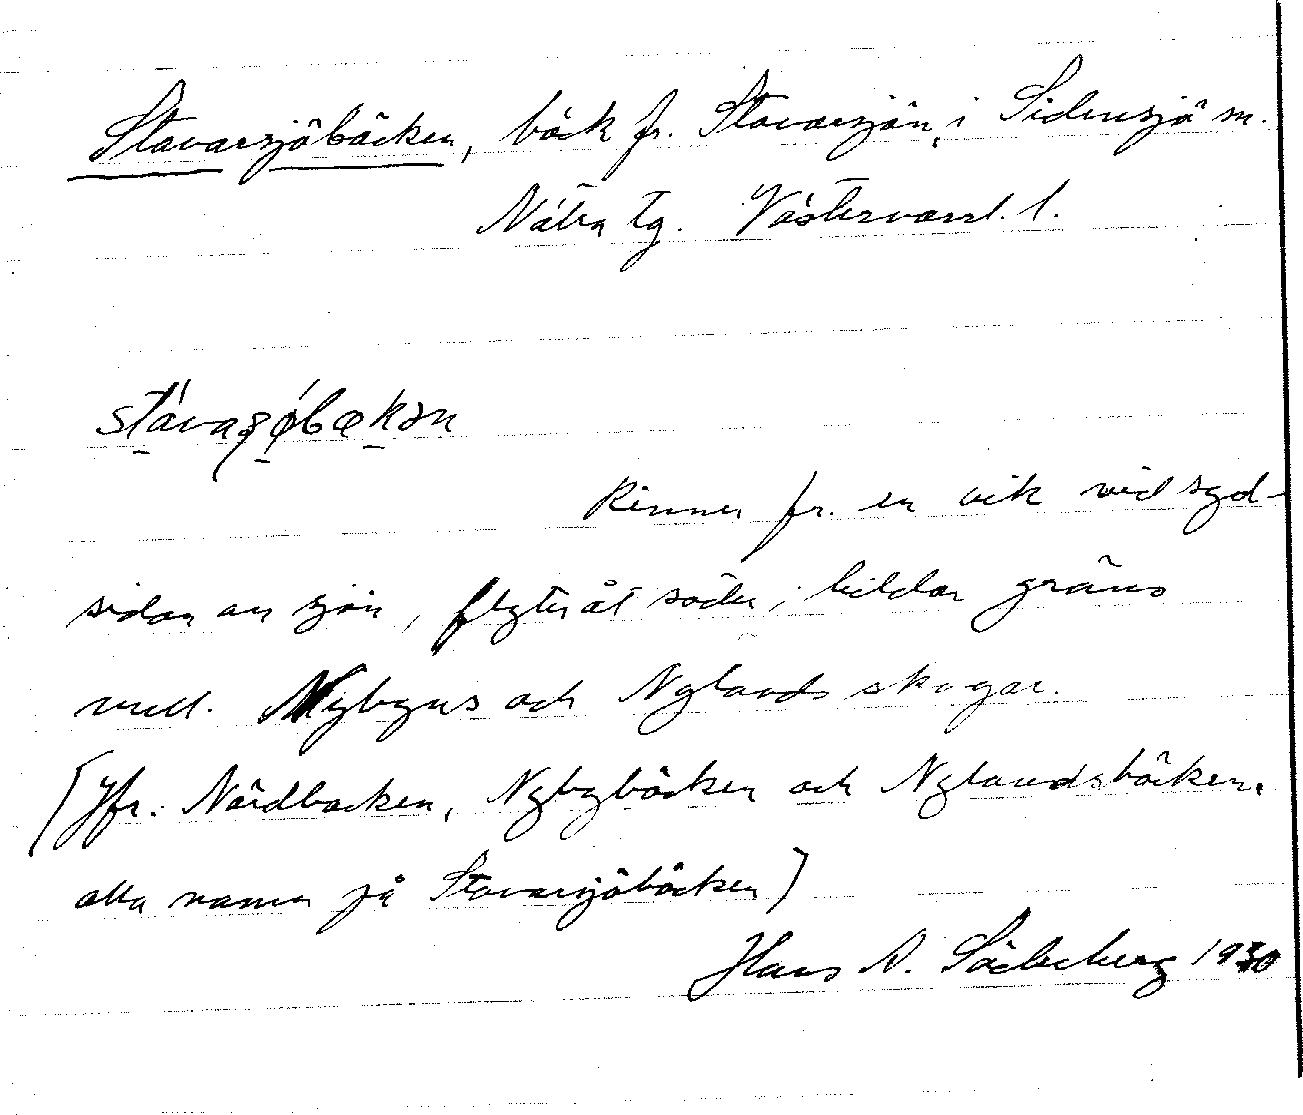 Stavarsjöbäcken, bäck fr. Stavarsjön, i Sidensjö sn.
Nätra tg. Västernorrl. l.
Rinner fr. en vik vid syd-
sidan av sjön, flyter åt söder, bildar gräns
mell. Nybyns och Nylands skogar.
(Jfr: Nördbacken, Nybybäcken och Nylandsbäcken,
alla namn på Stavarsjöbäcken)
Hans A. Söderberg 1930